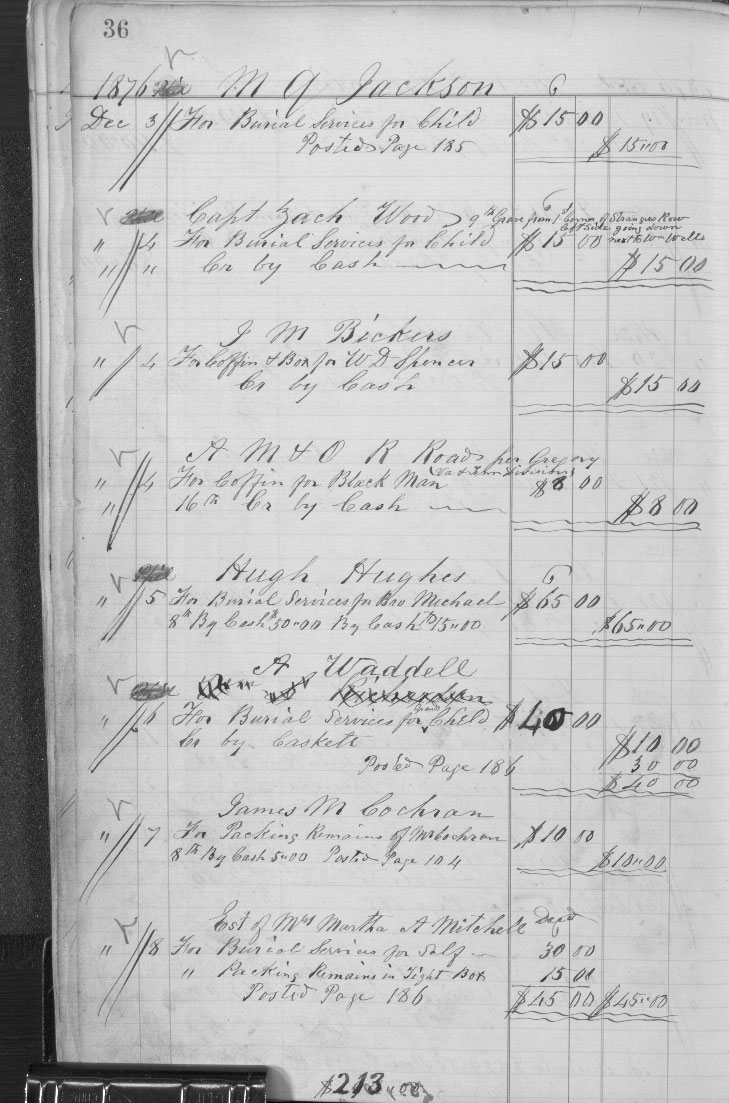 36
1876 M G Jackson
Dec 3 For Burial Services for Child $15 00
Posted Page 185 $15"00
Capt Zach Wood 9th Grave from 1st Corner of Strangers Row
Left Side going down
" 4 For Burial Services for Child $15 00 next to Wm Wells
" " Cr by Cash $15 00
J M Bickers
" 4 For Coffin & Box for W D Spencer $15 00
Cr by Cash $15 00
A M & O R Road per Gregory
Va & Tenn Division
" 4 For Coffin for Black Man $8 00
" 16th Cr by Cash $8 00
Hugh Hughes
" 5 For Burial Services for Bro Michael $65 00
8th By Cash 50"00 By Cash 15"00 $65"00
A Waddell
" 6 For Burial Services for Grand Child $40 00
Cr by Caskett $10 00
30 00
Posted Page 186 $40 00
James M Cochran
" 7 For Packing Remains of Mr Cochran $10 00
8th By Cash 5"00 Posted Page 104 $10"00
Est of Mrs Martha A Mitchell Decd
" 8 For Burial Services for Self 30 00
" Packing Remains in Tight Box 15 00
Posted Page 186 $45 00 $45"00
$213.00